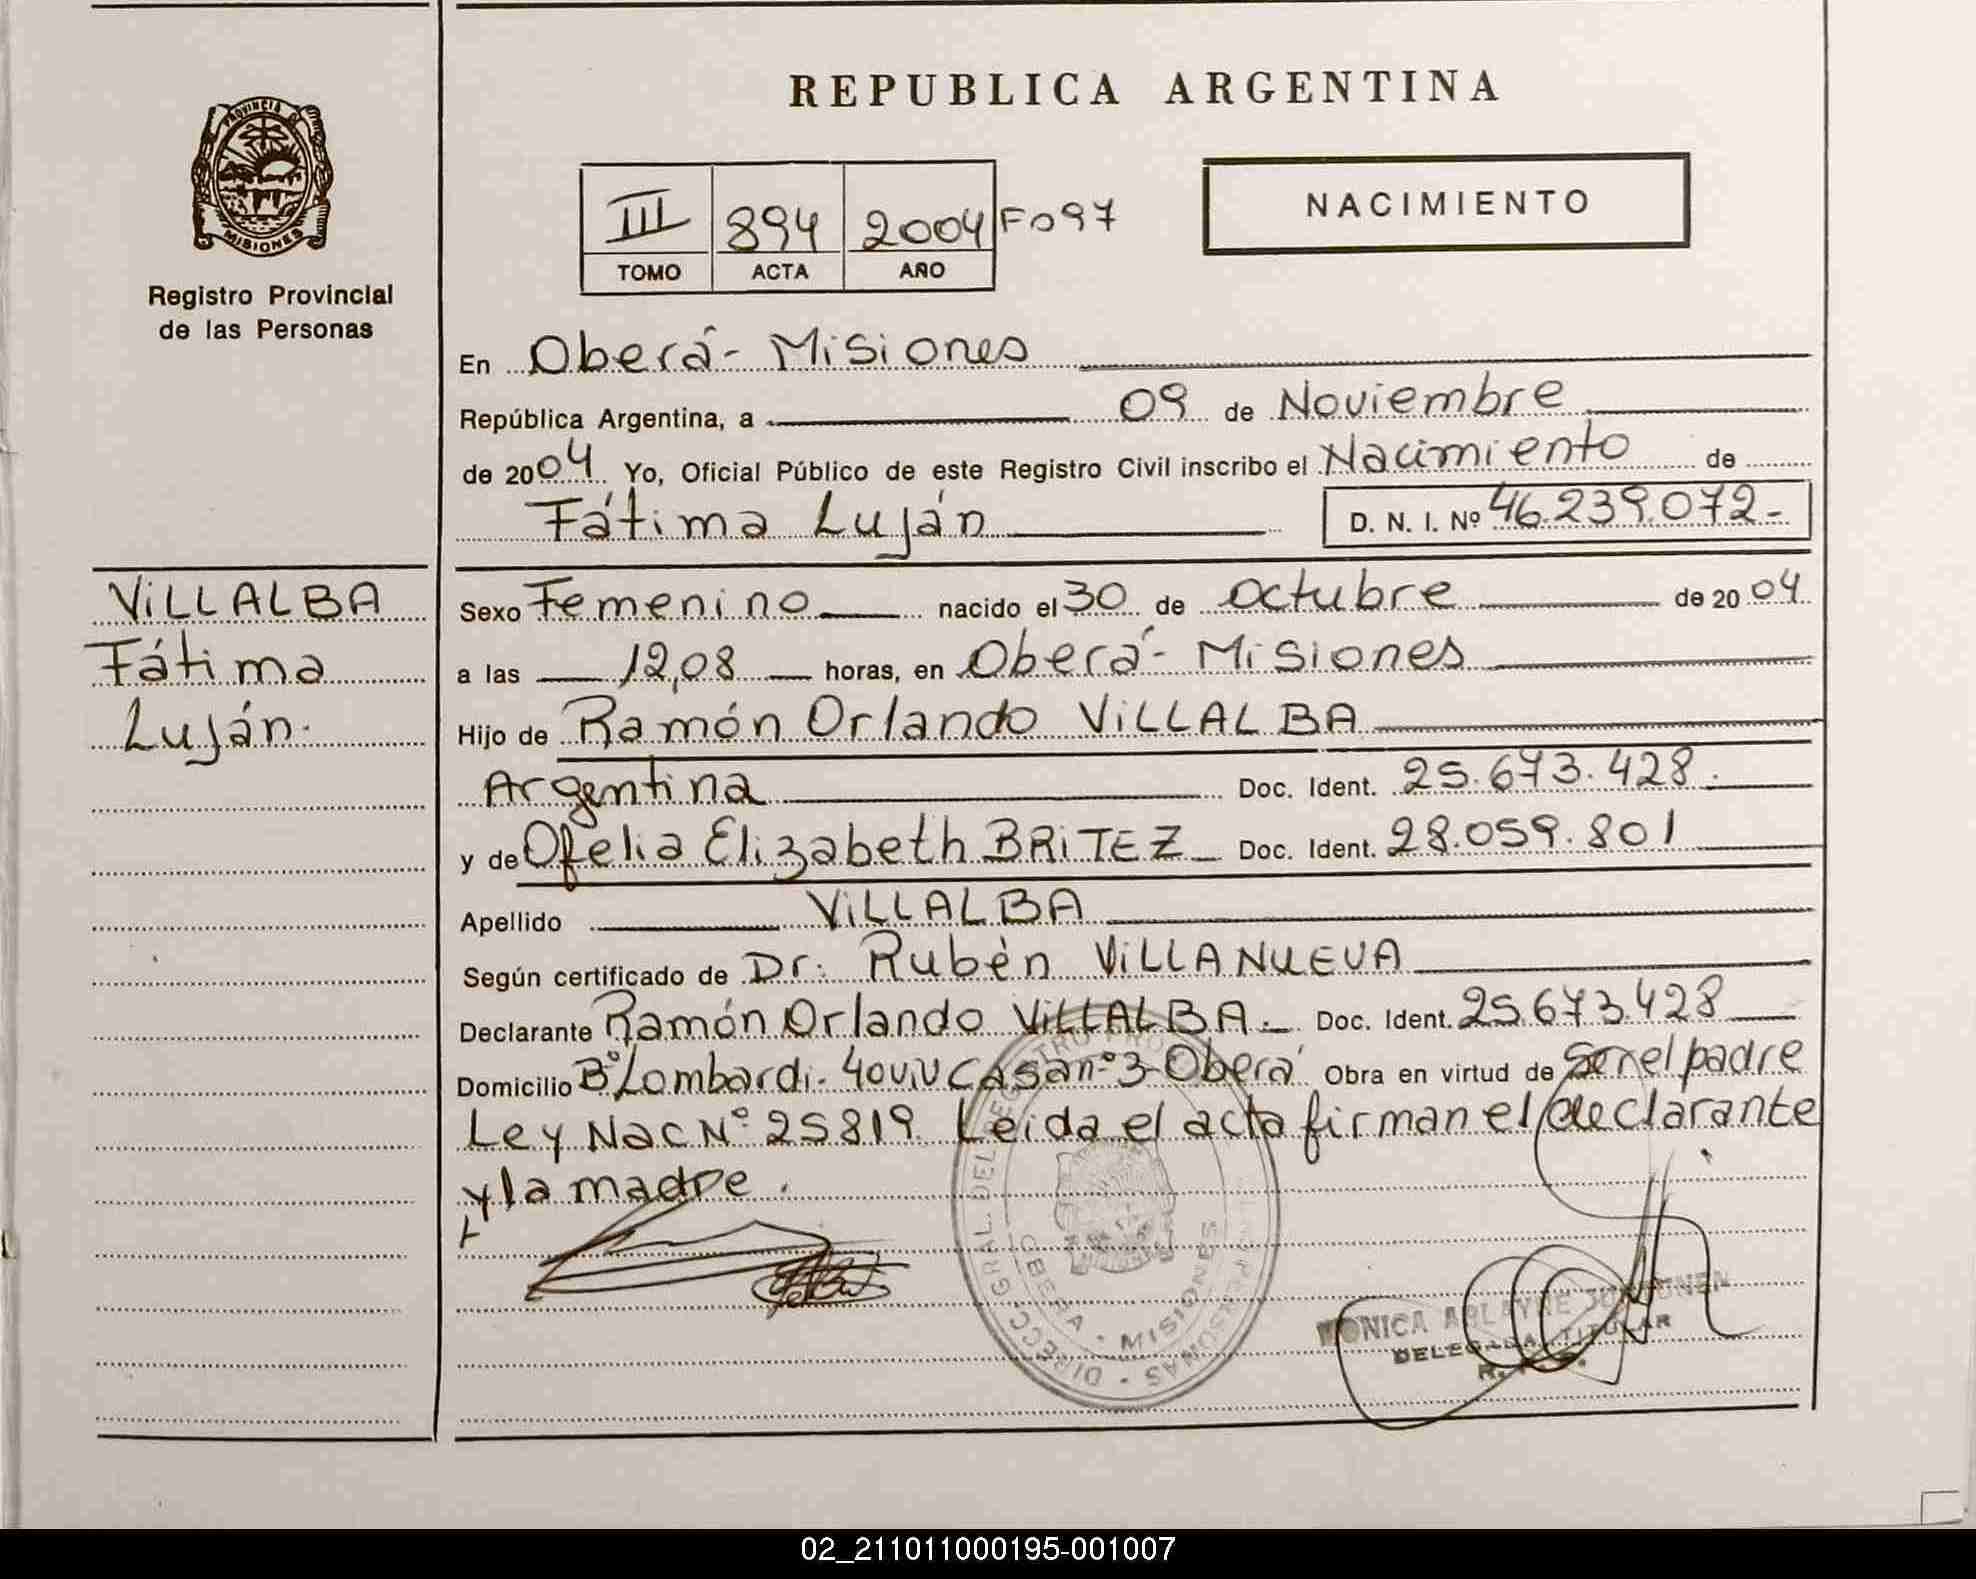 REPUBLICA ARGENTINA
PROVINCIA DE MISIONES
Registro Provincial
de las Personas
III 894 2004 F097
TOMO ACTA AÑO
NACIMIENTO
En Oberá - Misiones
República Argentina, a 09 de Noviembre
de 2004 Yo, Oficial Público de este Registro Civil inscribo el Nacimiento de
Fátima Luján D. N. I. Nº 46.239.072-
VILLALBA
Fátima
Luján.
Sexo Femenino nacido el 30 de Octubre de 2004
a las 12,08 horas, en Oberá - Misiones
Hijo de Ramón Orlando VILLALBA
Argentina Doc. Ident. 25.673.428.
y de Ofelia Elizabeth BRITEZ Doc. Ident. 28.059.801
Apellido VILLALBA
Según certificado de Dr. Rubén VILLANUEVA
Declarante Ramón Orlando VILLALBA.- Doc. Ident. 25.673.428
Domicilio Bº Lombardi - 40 viv casa nº 3 - Oberá Obra en virtud de ser el padre
Ley Nac Nº 25819. Leida el acta firman el declarante
y la madre.
DIRECC. GRAL. DEL REGISTRO PROV. PERSONAS
OBERA - MISIONES
MONICA ARLAYNE
DELEGADA TITULAR
02_211011000195-001007